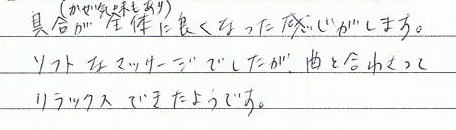 (かぜ気味もあり)
具合が全体に良くなった感じがします。
ソフトなマッサージでしたが、曲と合わさって
リラックスできたようです。